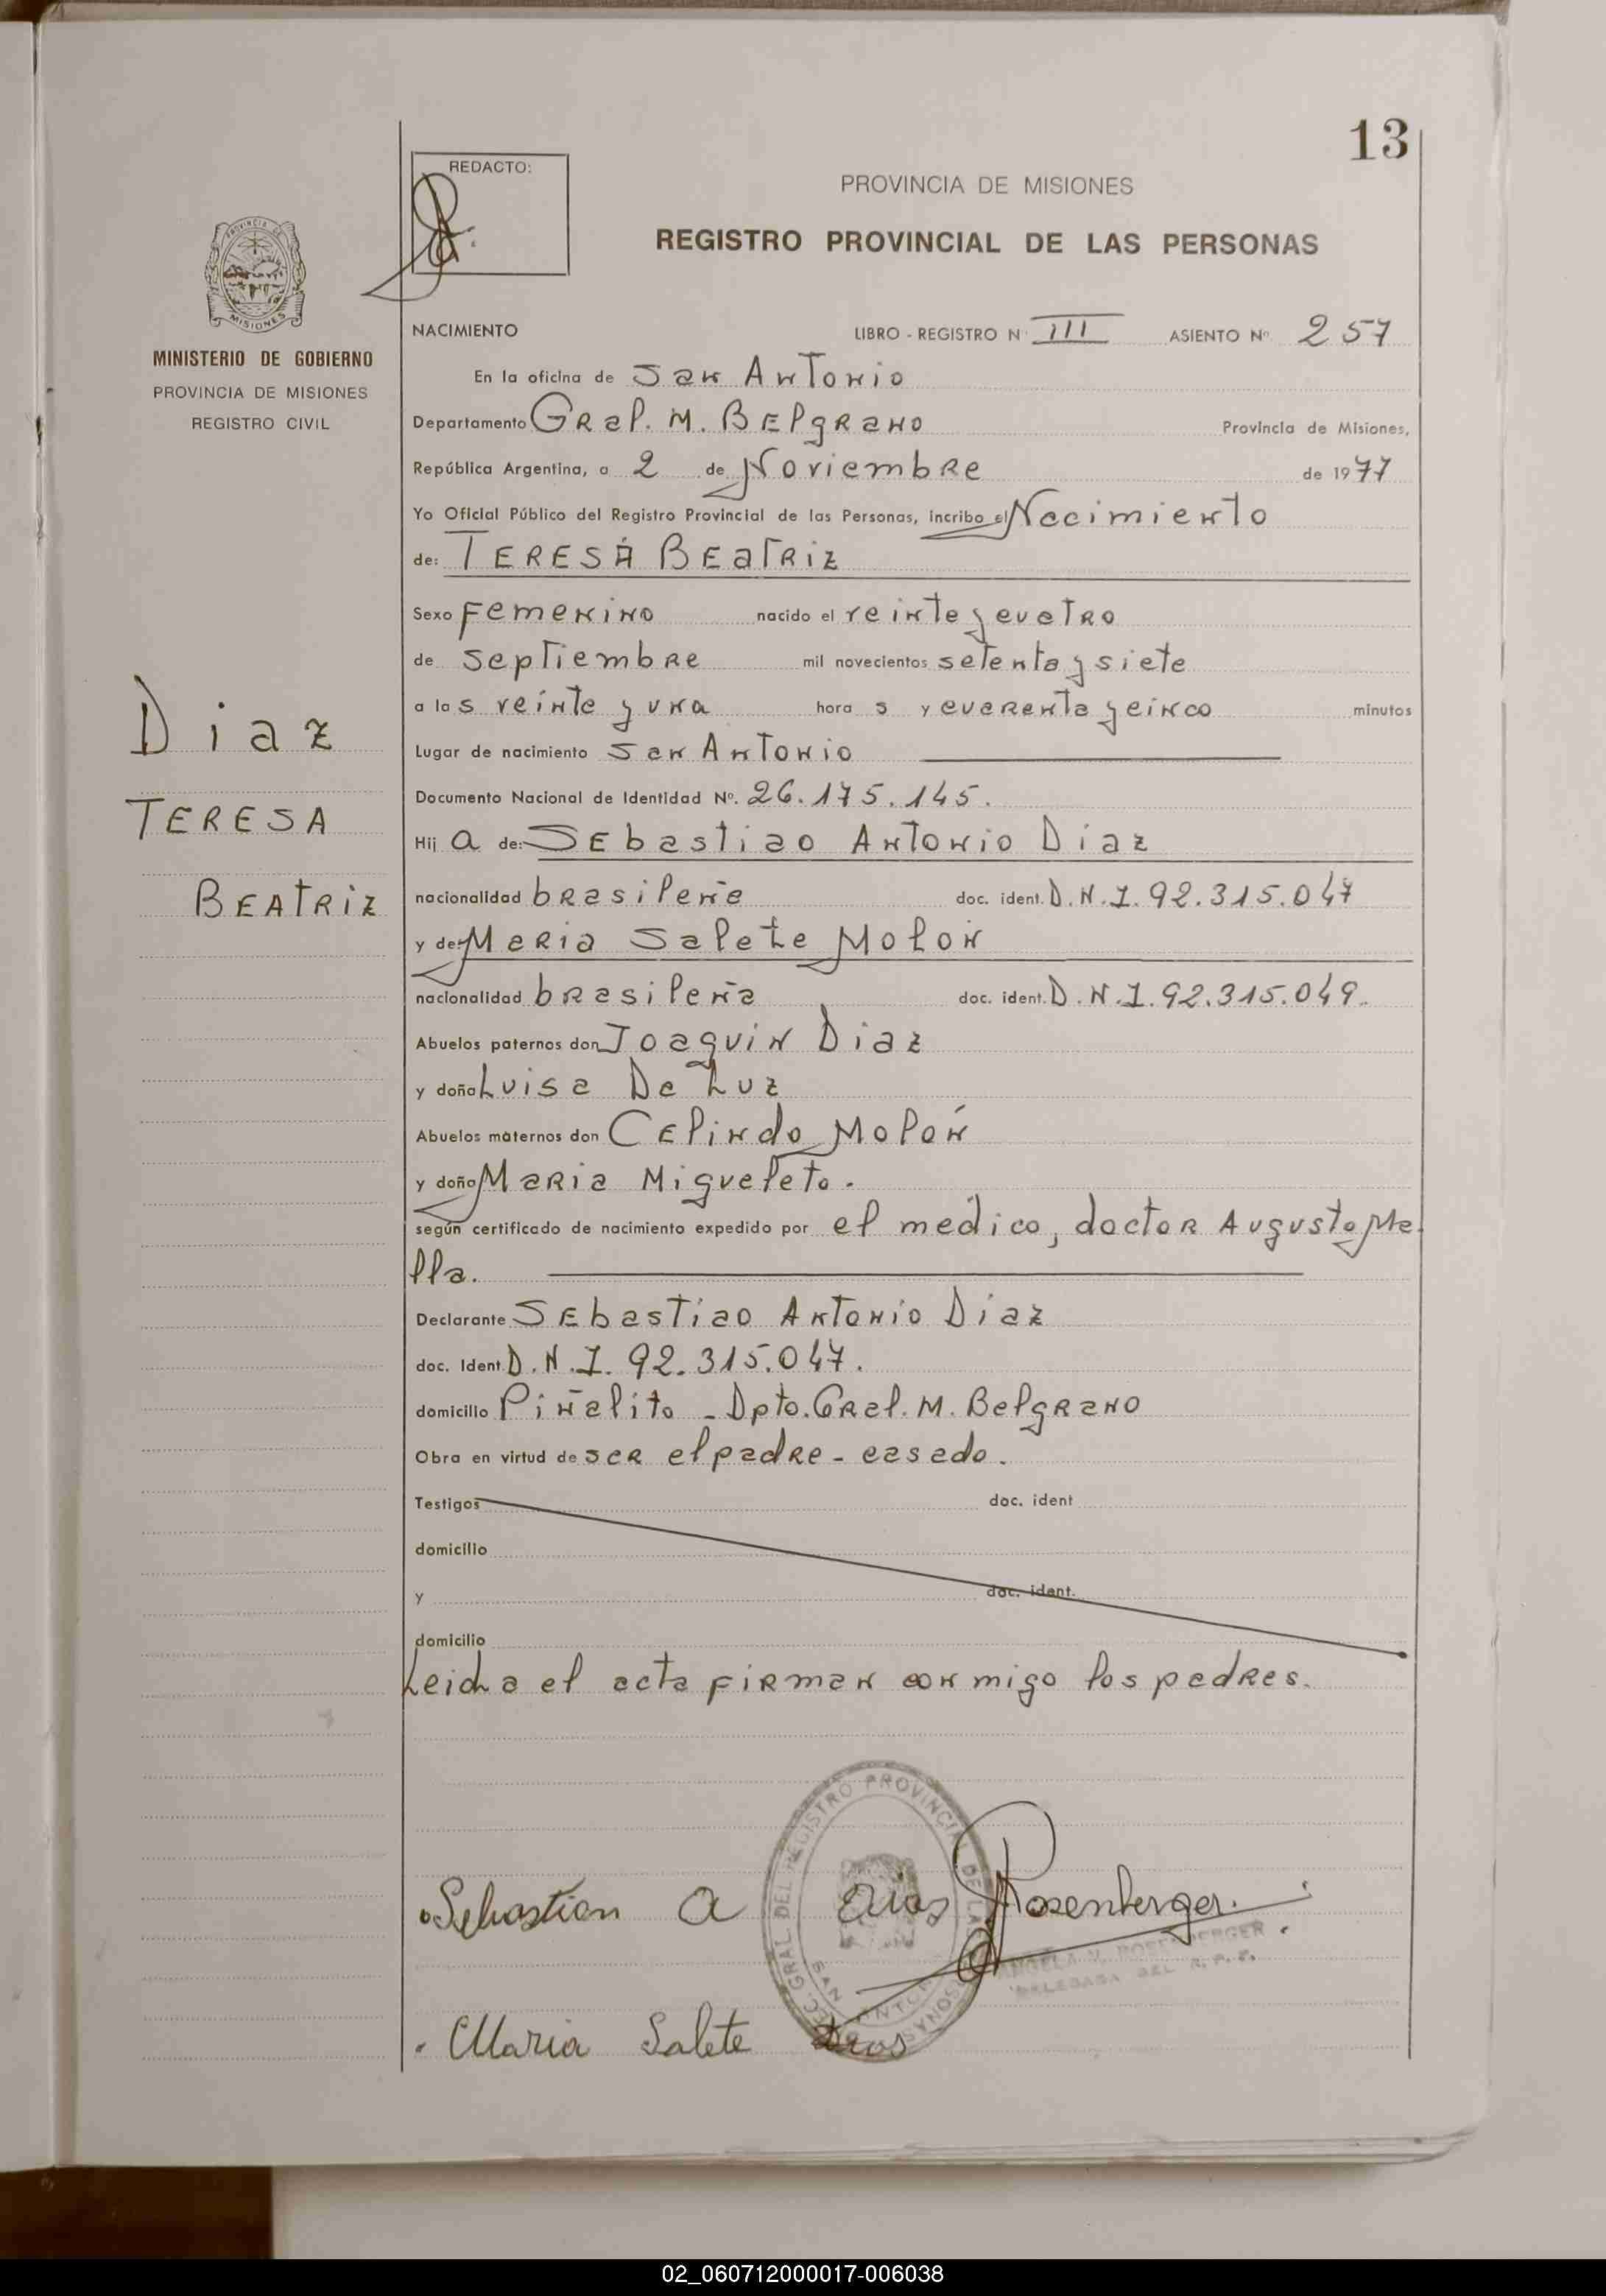 13
REDACTO:
PROVINCIA DE MISIONES
REGISTRO PROVINCIAL DE LAS PERSONAS
PROVINCIA DE
MISIONES
MINISTERIO DE GOBIERNO
PROVINCIA DE MISIONES
REGISTRO CIVIL
Diaz
TERESA
BEATRIZ
NACIMIENTO LIBRO - REGISTRO N° III ASIENTO N° 257
En la oficina de San Antonio
Departamento Gral. M. Belgrano Provincia de Misiones,
República Argentina, a 2 de Noviembre de 1977
Yo Oficial Público del Registro Provincial de las Personas, incribo el Nacimiento
de: TERESA BEATRIZ
Sexo Femenino nacido el veinte y cuatro
de septiembre mil novecientos setenta y siete
a las veinte y una hora s y cuarenta y cinco minutos
Lugar de nacimiento San Antonio
Documento Nacional de Identidad N°. 26.175.145.
Hij a de: Sebastiao Antonio Diaz
nacionalidad brasileña doc. ident. D.N.I. 92.315.047
y de: Maria Salete Molon
nacionalidad brasileña doc. ident. D.N.I. 92.315.049.
Abuelos paternos don Joaquin Diaz
y doña Luisa De Luz
Abuelos maternos don Celindo Molón
y doña Maria Migueleto.
según certificado de nacimiento expedido por el medico, doctor Augusto Me
lla.
Declarante Sebastiao Antonio Diaz
doc. Ident. D.N.I. 92.315.047.
domicilio Piñalito - Dpto. Gral. M. Belgrano
Obra en virtud de ser el padre - casado.
Testigos doc. ident
domicilio
y doc. ident.
domicilio
Leida el acta firman conmigo los padres.
Sebastian A Dias Rosenberger.
SEC. GRAL. DEL REGISTRO PROVINCIAL DE LAS PERSONAS
SAN ANTONIO
ANGELA V. ROSENBERGER
DELEGADA DEL R. P. P.
Maria Salete Dias
02_060712000017-006038